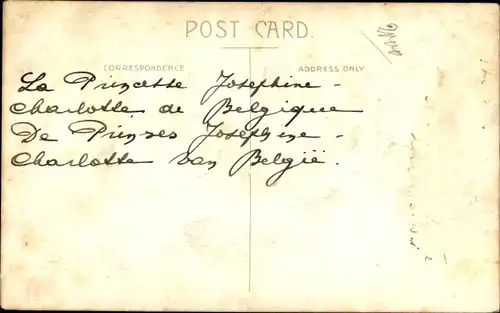 POST CARD.
CORRESPONDENCE
ADDRESS ONLY
La Princesse Joséphine-
Charlotte de Belgique
De Prinses Josephine-
Charlotte van België.